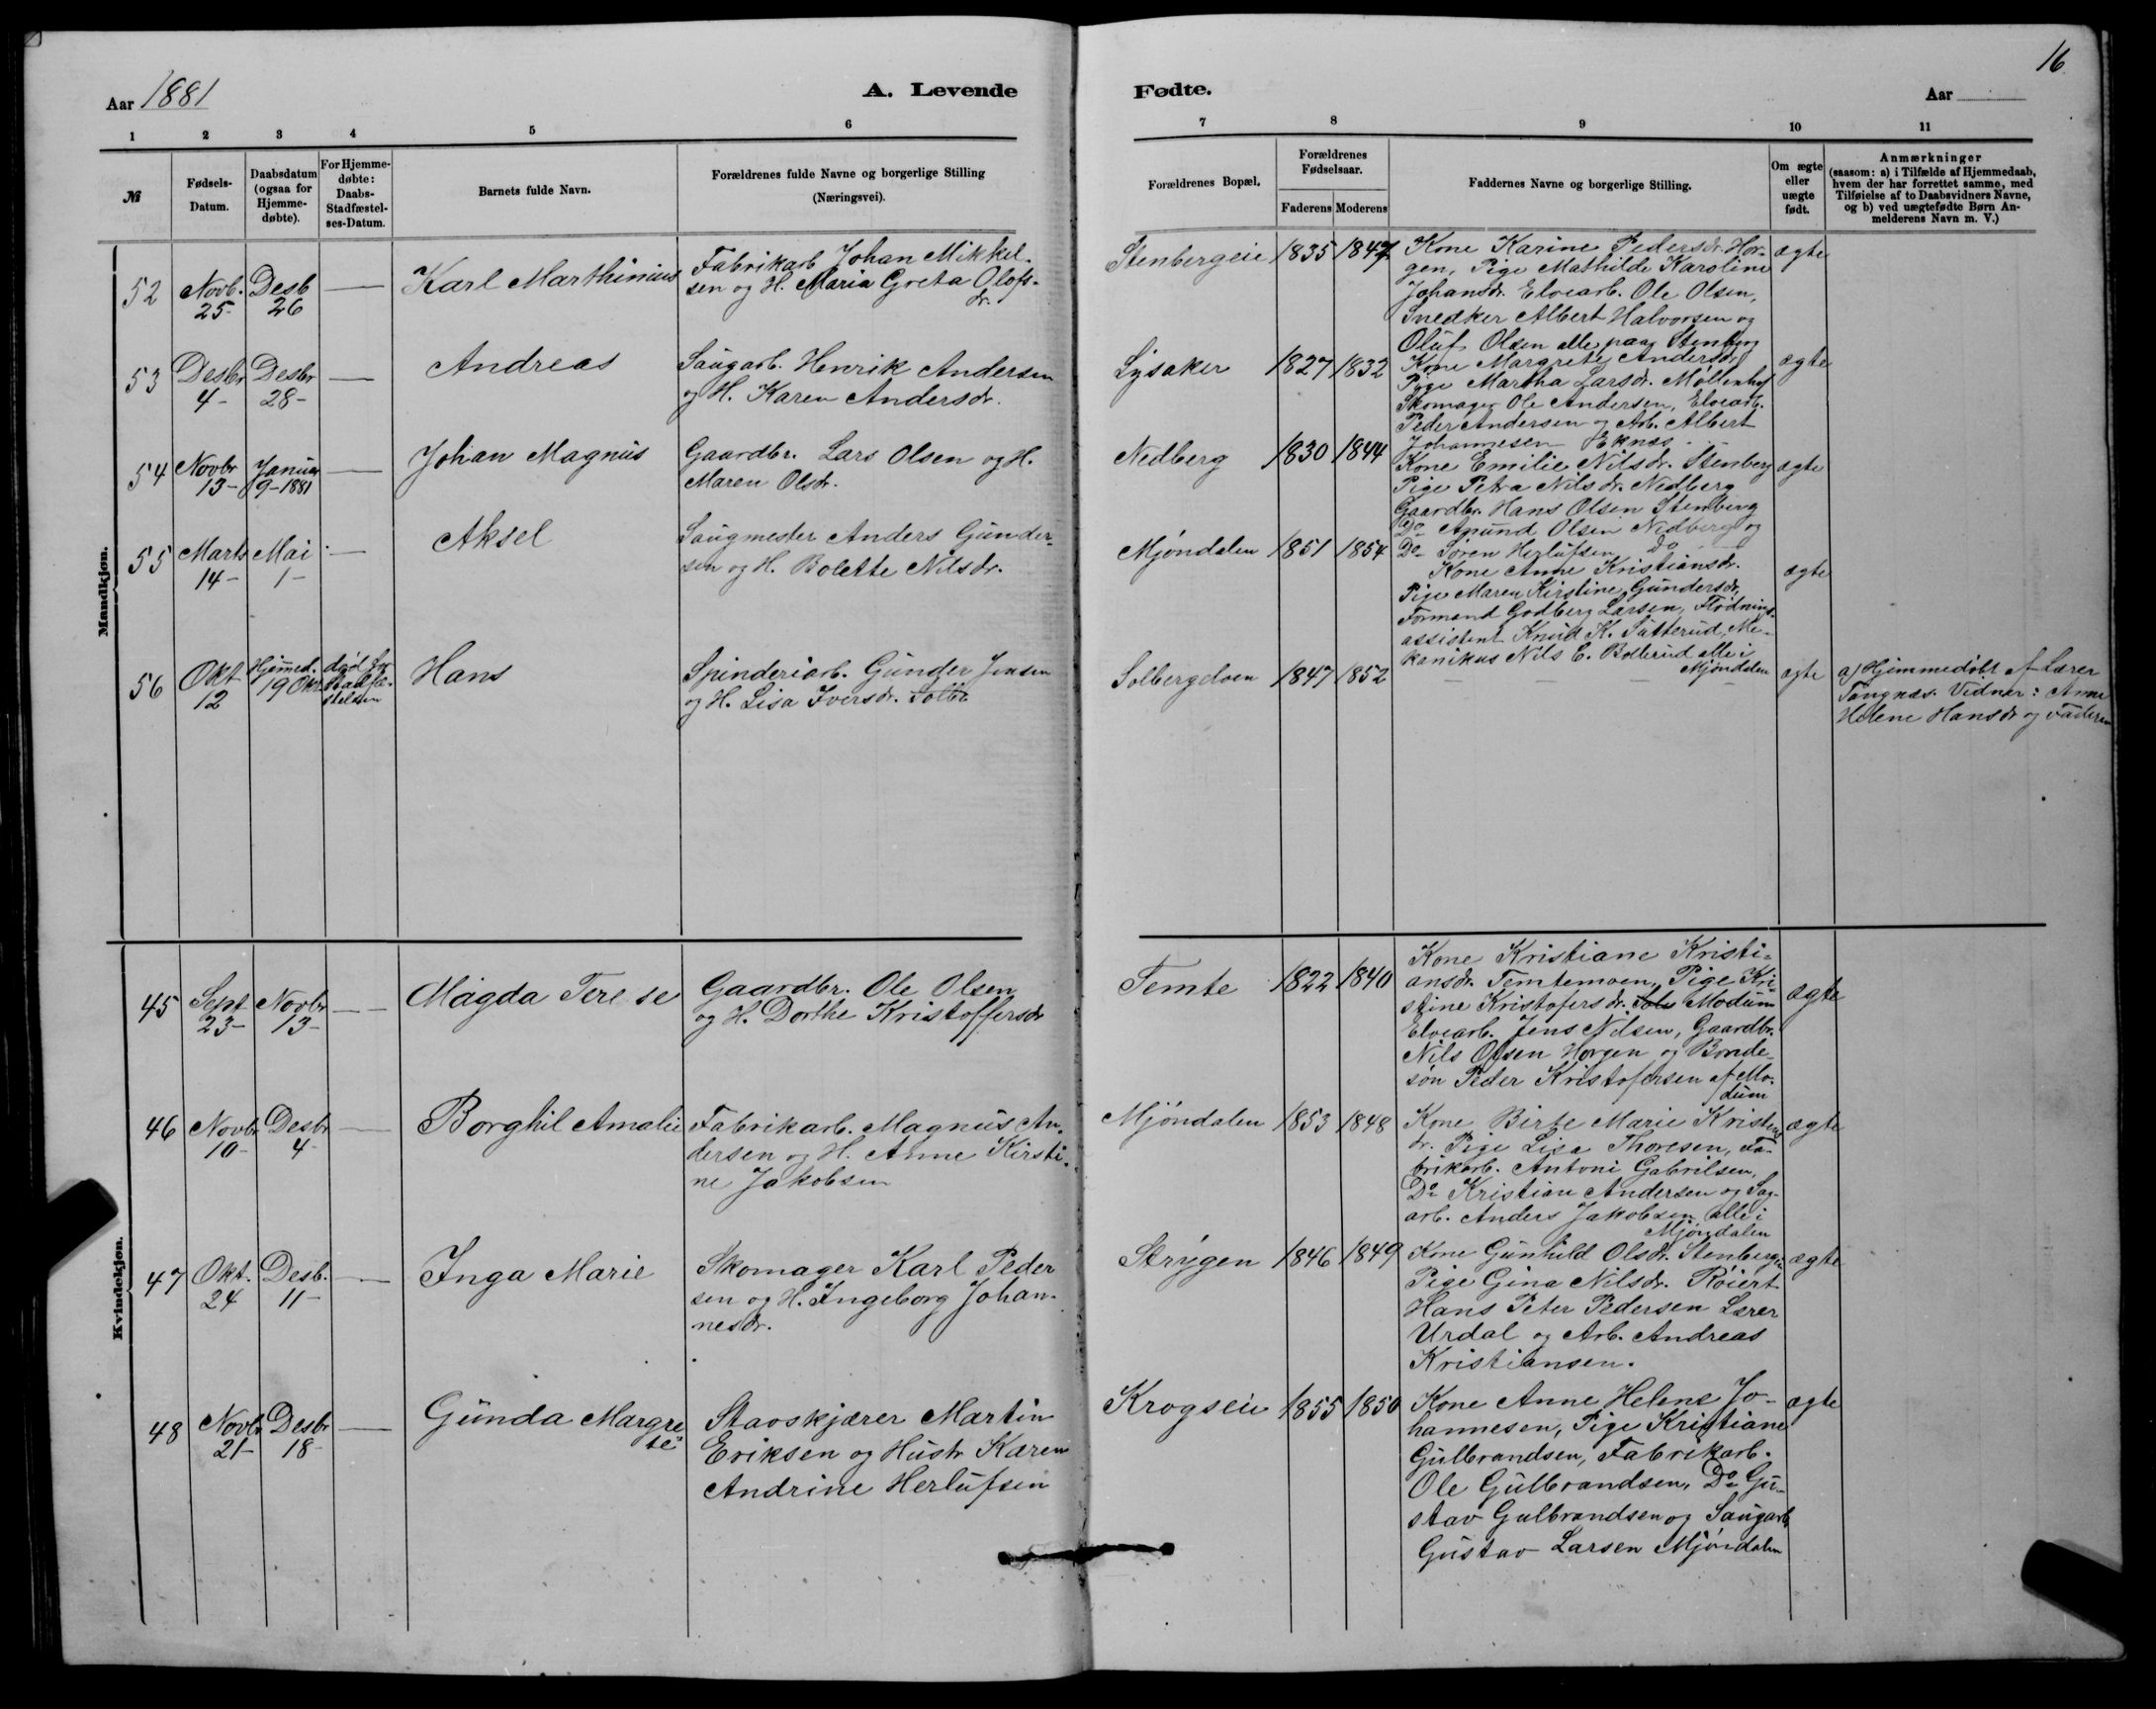 16
Aar 1881
A. Levende
Fødte.
Aar
1 2 3 4 5 6
7 8 9 10 11
№
Fødsels-Datum.
Daabsdatum (ogsaa for Hjemme-døbte).
For Hjemme-døbte: Daabs-Stadfæstel-ses-Datum.
Barnets fulde Navn.
Forældrenes fulde Navne og borgerlige Stilling
(Næringsvei).
Forældrenes Bopæl.
Forældrenes Fødselsaar.
Faderens Moderens
Faddernes Navne og borgerlige Stilling.
Om ægte eller uægte født.
Anmærkninger
(saasom: a) i Tilfælde af Hjemmedaab,
hvem der har forrettet samme, med
Tilføielse af to Daabsvidners Navne,
og b) ved uægtefødte Børn An-
melderens Navn m. V.)
Mandkjøn.
52 Novb. 25- Desb 26 — Karl Marthinius
Fabrikarb Johan Mikkel-
sen og H. Maria Greta Olofs-
dr.
Stenbergeie 1835 1847
Kone Karine Pedersdr. Hor-
gen, Pige Mathilde Karoline
Johansdr. Elvearb. Ole Olsen,
Snedker Albert Halvorsen og
Oluf Olsen alle paa Stenberg
ægte
53 Desbr 4- Desbr 28- — Andreas
Saugarb. Henrik Andersen
og H. Karen Andersdr.
Lysaker 1827 1832
Kone Margrete Andersdr
Pige Martha Larsdr. Møllenhof
Skomager Ole Andersen, Elvearb.
Peder Andersen og Arb. Albert
Johannesen Eknes
ægte
54 Novbr 13- Januar 9-1881 — Johan Magnus
Gaardbr. Lars Olsen og H.
Maren Olsdr.
Nedberg 1830 1844
Kone Emilie Nilsdr. Stenberg
Pige Petra Nilsdr. Nedberg
Gaardbr. Hans Olsen Stenberg
Do Amund Olsen Nedberg og
Do Søren Herlufsen Do
ægte
55 Marts 14- Mai 1- — Aksel
Saugmester Anders Gunder-
sen og H. Bolette Nilsdr.
Mjøndalen 1851 1854
Kone Anne Kristiansdr.
Pige Maren Kirstine Gundersdr,
Formand Godberg Larsen, Flødnings
assistent Knud K. Sätterud, Me-
kanikus Nils E. Bollerud alle i
Mjøndalen
ægte
56 Okt 12 Hjemmed. 19 Okt død før Stadfæ-stelsen Hans
Spinderiarb. Gunder Jensen
og H. Lisa Iversdr. Solbr
Solbergelven 1847 1852 — — — —
ægte
a) Hjemmedøbt af Lærer
Tangnæs. Vidner: Anne
Helene Hansdr og Faderen
Kvindekjøn.
45 Sept 23- Novbr 13- — Magda Terese
Gaardbr. Ole Olsen
og H. Dorthe Kristoffersdr
Temte 1822 1840
Kone Kristiane Kristi-
ansdr. Temtemoen, Pige Kri-
stine Kristofersdr. Sols Modum
Elvearb. Jens Nilsen, Gaardbr.
Nils Olsen Horgen og Bonde-
søn Peder Kristofersen af Mo-
dum
ægte
46 Novbr 10- Desbr 4- — Borghil Amalie
Fabrikarb. Magnus An-
dersen og H. Anne Kirsti-
ne Jakobsen
Mjøndalen 1853 1848
Kone Birte Marie Kristens
dr. Pige Lisa Thoresen, Fa-
brikarb. Antoni Gabrilsen,
Do Kristian Andersen og Sag-
arb. Anders Jakobsen alle i
Mjøndalen
ægte
47 Okt. 24 Desb. 11- — Inga Marie
Skomager Karl Peder
sen og H. Ingeborg Johan-
nesdr.
Strygen 1846 1849
Kone Gunhild Olsdr. Stenberg,
Pige Gina Nilsdr. Røiert
Hans Peter Pedersen Lærer
Urdal og Arb. Andreas
Kristiansen.
ægte
48 Novbr 21- Desbr 18- — Gunda Margre
te
Stavskjærer Martin
Eriksen og Hustr Karen
Andrine Herlufsen
Krogseie 1855 1850
Kone Anne Helene Jo-
hannesen, Pige Kristiane
Gulbrandsen, Fabrikarb.
Ole Gulbrandsen, Do Gu-
stav Gulbrandsen og Saugarb
Gustav Larsen Mjøndalen
ægte